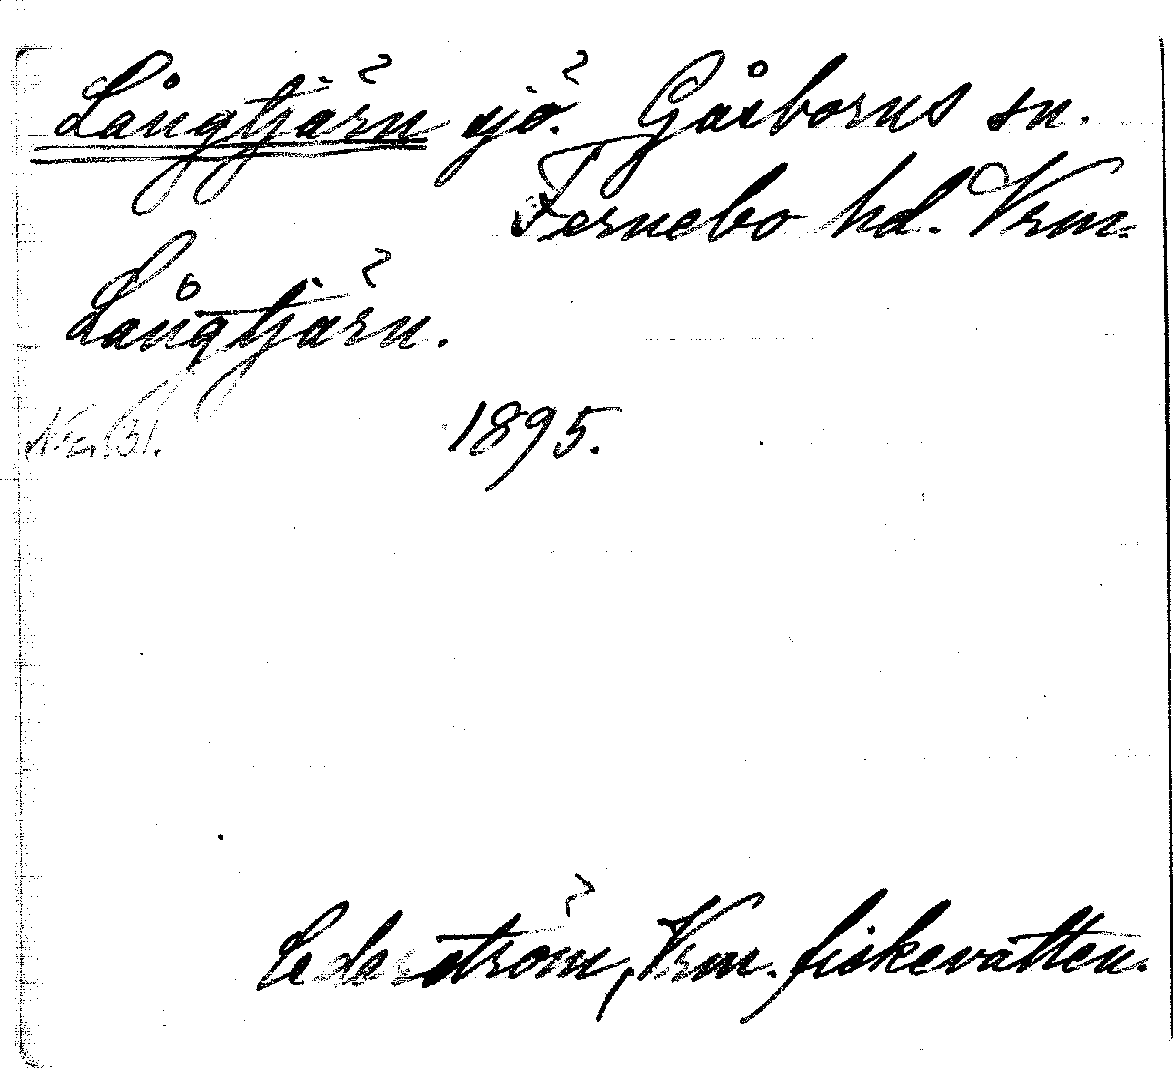 Långtjärn sjö. Gåsborns sn.
Fernebo hd. Vrm.
Långtjärn.
1895.
Cederström, Vrm. fiskevatten.